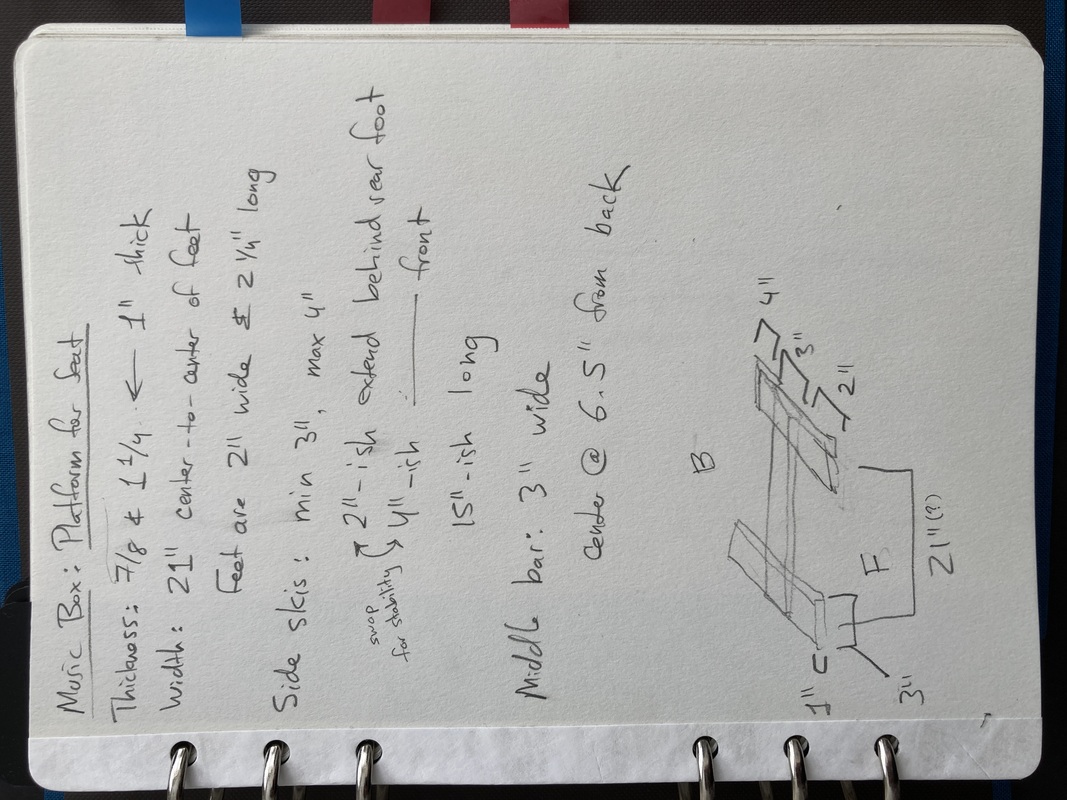 Music Box: Platform for Seat
Thickness: 7/8 & 1 1/4. ← 1" thick
Width: 21" center-to-center of feet
Feet are 2" wide & 2 1/4" long
Side skis: min 3", max 4"
swap for stability
2"-ish extend behind rear foot
4"-ish front
15"-ish long
Middle bar: 3" wide
center @ 6.5" from back
B
4"
3"
2"
F
1"
3"
21"(?)